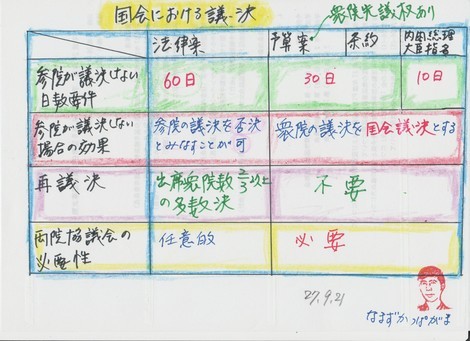 国会における議決
衆院先議権あり
法律案 予算案 条約 内閣総理
大臣指名
参院が議決しない
日数要件
60日 30日 10日
参院が議決しない
場合の効果
参院の議決を否決
とみなすことが可
衆院の議決を国会議決とする
再議決
出席衆院数2/3以上
の多数決
不要
両院協議会の
必要性
任意的 必要
27.9.21
なまずかっぱがま